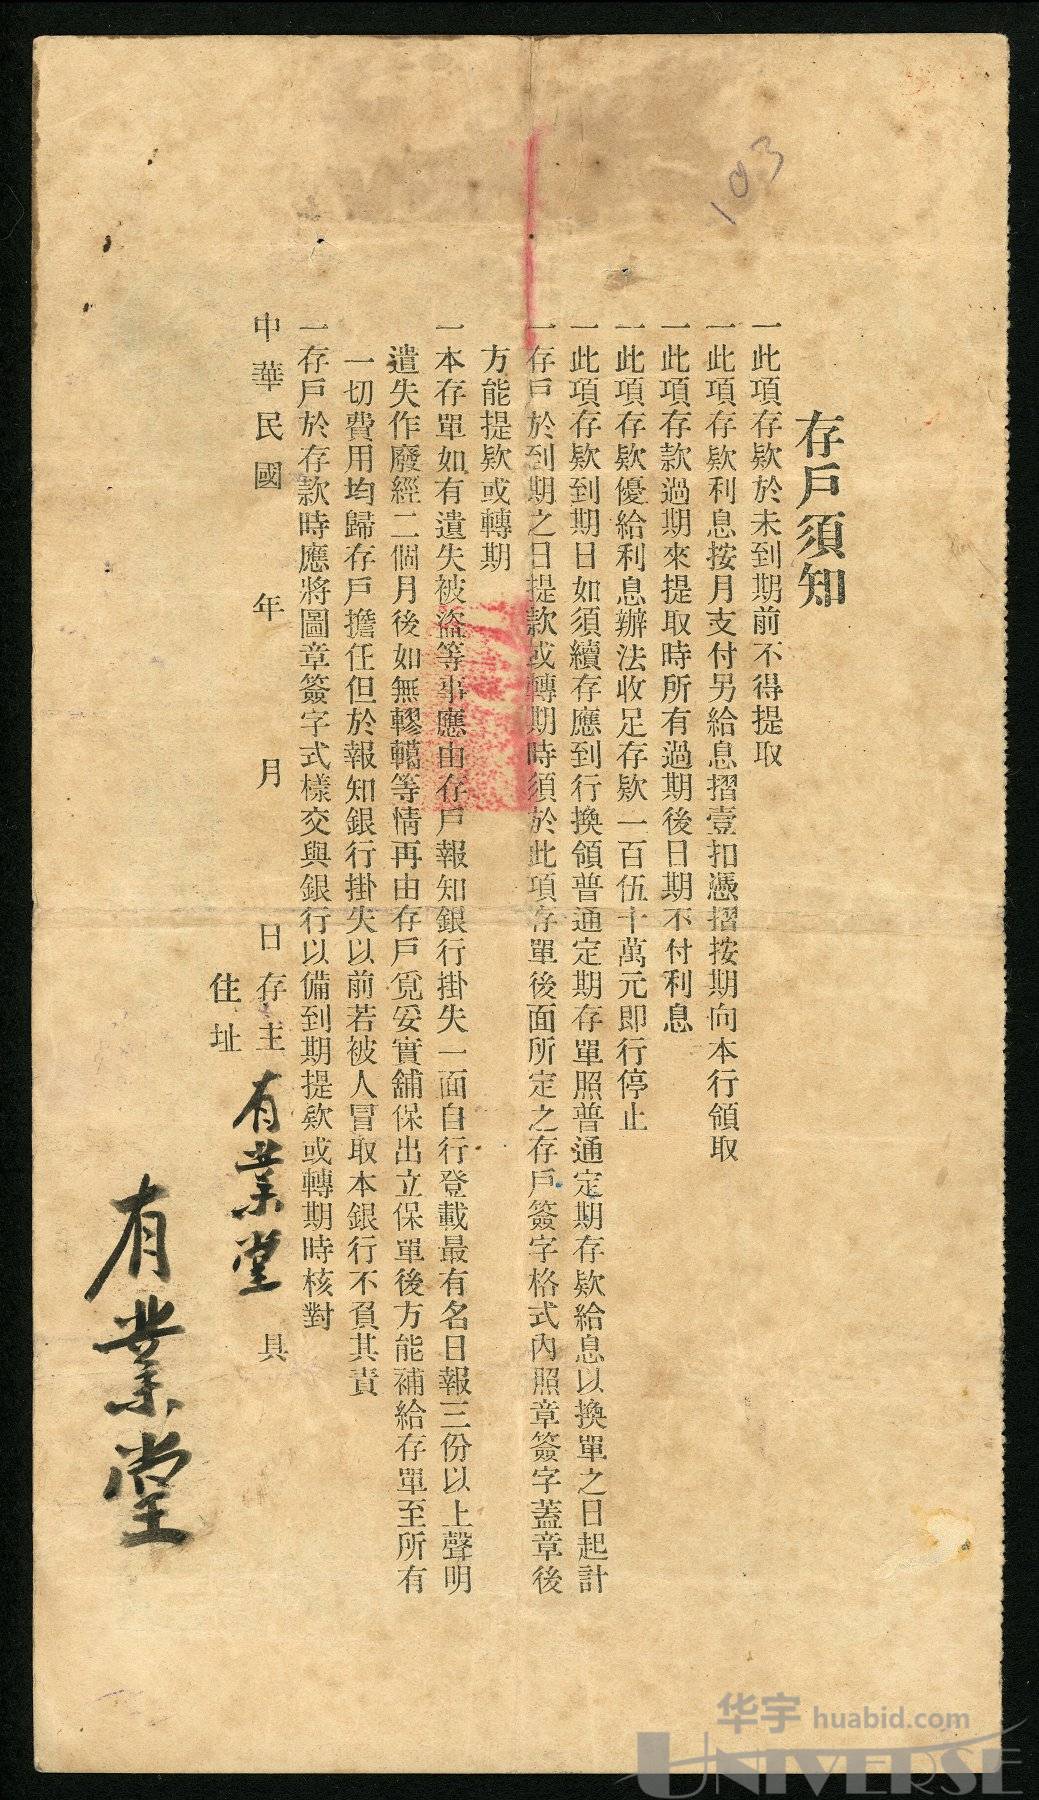 103
存戶須知
一此項存欵於未到期前不得提取
一此項存欵利息按月支付另給息摺壹扣憑摺按期向本行領取
一此項存款過期來提取時所有過期後日期不付利息
一此項存欵優給利息辦法收足存欵一百伍十萬元即行停止
一此項存欵到期日如須續存應到行換領普通定期存單照普通定期存欵給息以換單之日起計
一存戶於到期之日提款或轉期時須於此項存單後面所定之存戶簽字格式內照章簽字蓋章後
方能提欵或轉期
一本存單如有遺失被盜等事應由存戶報知銀行掛失一面自行登載最有名日報三份以上聲明
遺失作廢經二個月後如無轇轕等情再由存戶覓妥實舖保出立保單後方能補給存單至所有
一切費用均歸存戶擔任但於報知銀行掛失以前若被人冒取本銀行不負其責
一存戶於存款時應將圖章簽字式樣交與銀行以備到期提欵或轉期時核對
中華民國 年 月 日存主 有業堂 具
住址
有業堂
华宇 huabid.com
UNIVERSE